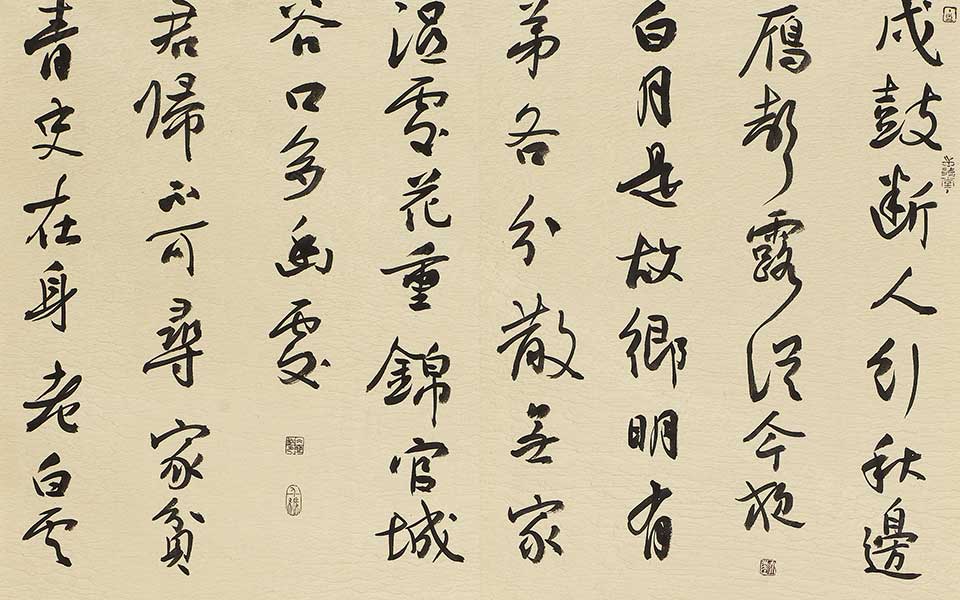 戍鼓斷人行秋邊
鴈聲露從今夜
白月是故鄉明有
弟各分散無家
濕處花重錦官城
谷口多幽處
君歸不可尋家貧
青史在身老白雲